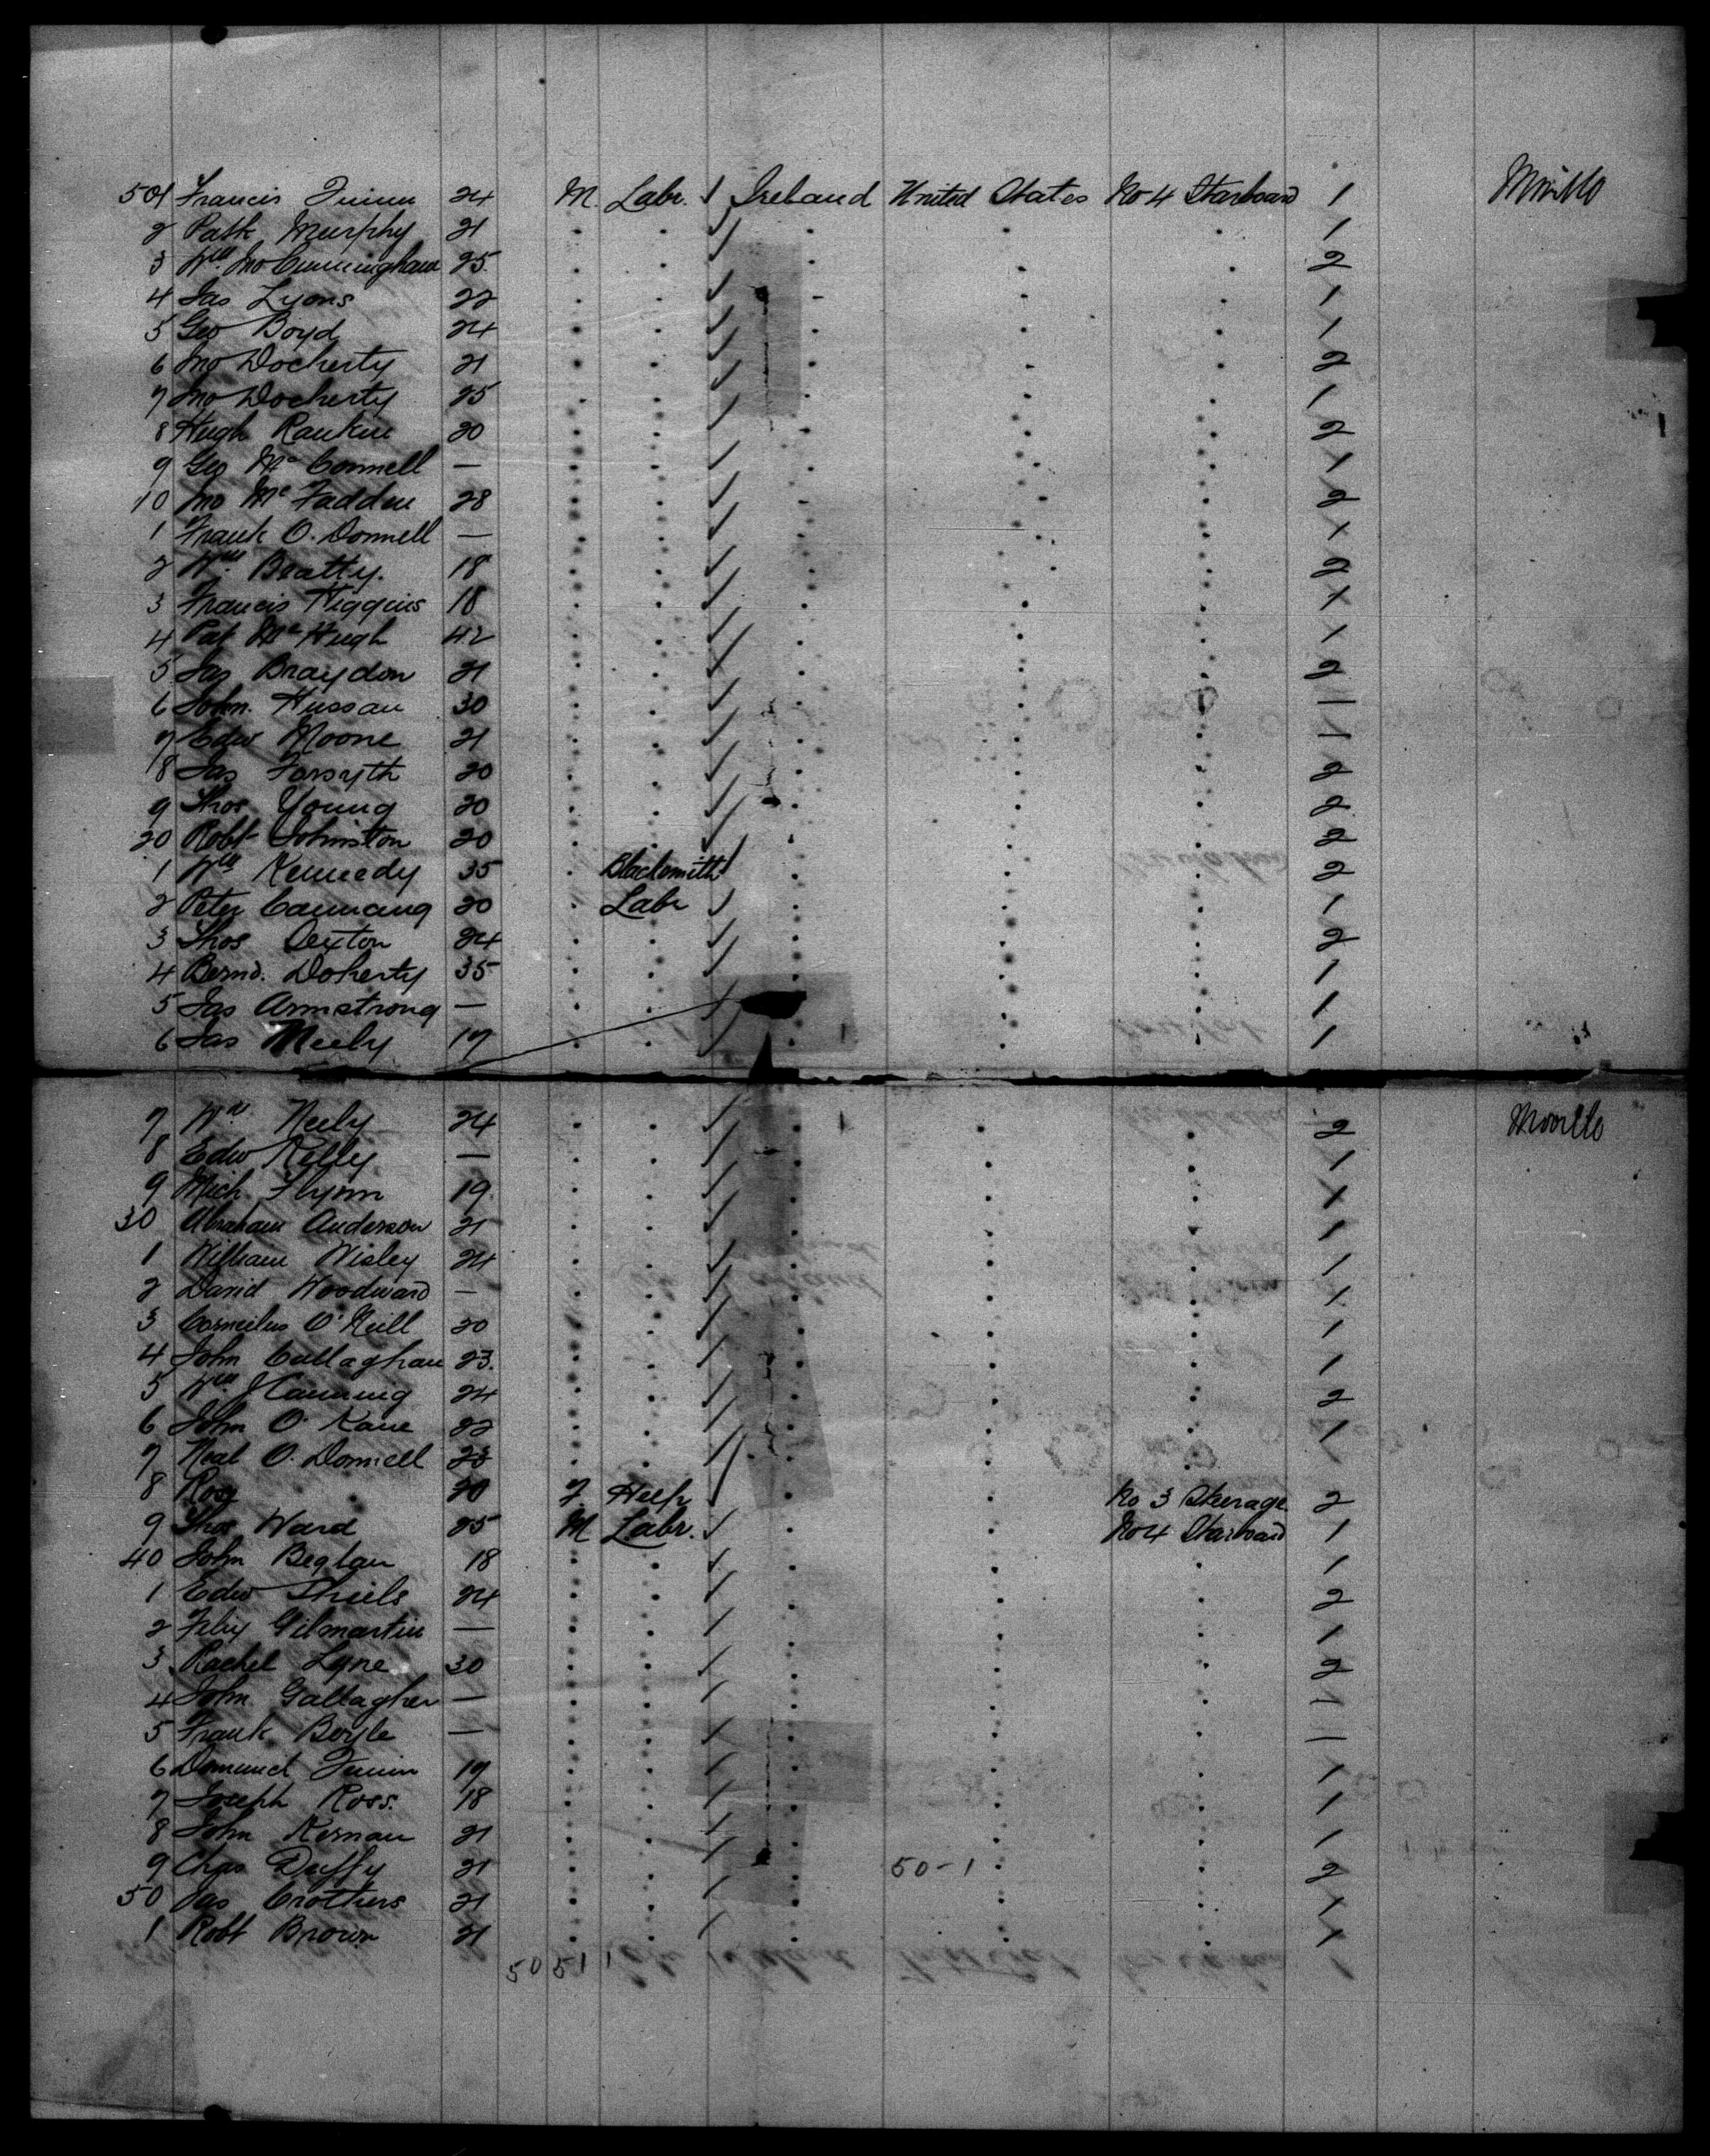 501 Francis Quinn 24 M. Labr. Ireland United States No 4 Starboard 1 Moville
2 Patk Murphy 21 1
3 Wm. Jno Cunningham 25 2
4 Jas Lyons 22 1
5 Geo Boyd 24 1
6 Jno Docherty 21 2
7 Jno Docherty 25 1
8 Hugh Rankin 20 2
9 Geo McConnell — 1
10 Jno McFadden 28 2
1 Frank O. Donnell — 1
2 Wm. Beatty. 18 2
3 Francis Higgins 18 1
4 Pat McHugh 42 1
5 Jas Braydon 21 2
6 John. Hussau 30 1
7 Edw Moore 21 1
8 Jas Forsyth 20 2
9 Thos Young 20 2
20 Robt Johnston 20 2
1 Wm Kennedy 35 Blacksmith 2
2 Peter 20 Labr 1
3 Thos Dexton 24 2
4 Bernd. Doherty 35 1
5 Jas Armstrong — 1
6 Jas Neely 17 1
7 Wm Neely 24 2 Moville
8 Edw Kelly — 1
9 Mich Flynn 19 1
30 Abraham Anderson 21 1
1 William Wisley 24 1
2 David Woodward — 1
3 Cornelius O'Neill 20 1
4 John Callaghan 23. 1
5 Wm. Canning 24 2
6 John O. Kane 22 1
7 Neal O. Donnell 23 1
8 Rose 20 F. Help No 3 Steerage 2
9 Thos Ward 25 M Labr. No 4 Starboard 1
40 John Beglan 18 1
1 Edw Shiels 24 2
2 Felix Gilmartin — 1
3 Rachel Lyne 30 2
4 John. Gallagher — 1
5 Frank Boyle — 1
6 Quinn 17 1
7 Joseph Ross. 18 1
8 John Kernan 21 1
9 Chas Duffy 21 50-1 2
50 Jas Crothers 21 1
1 Robt Brown 21 1
50 51 1